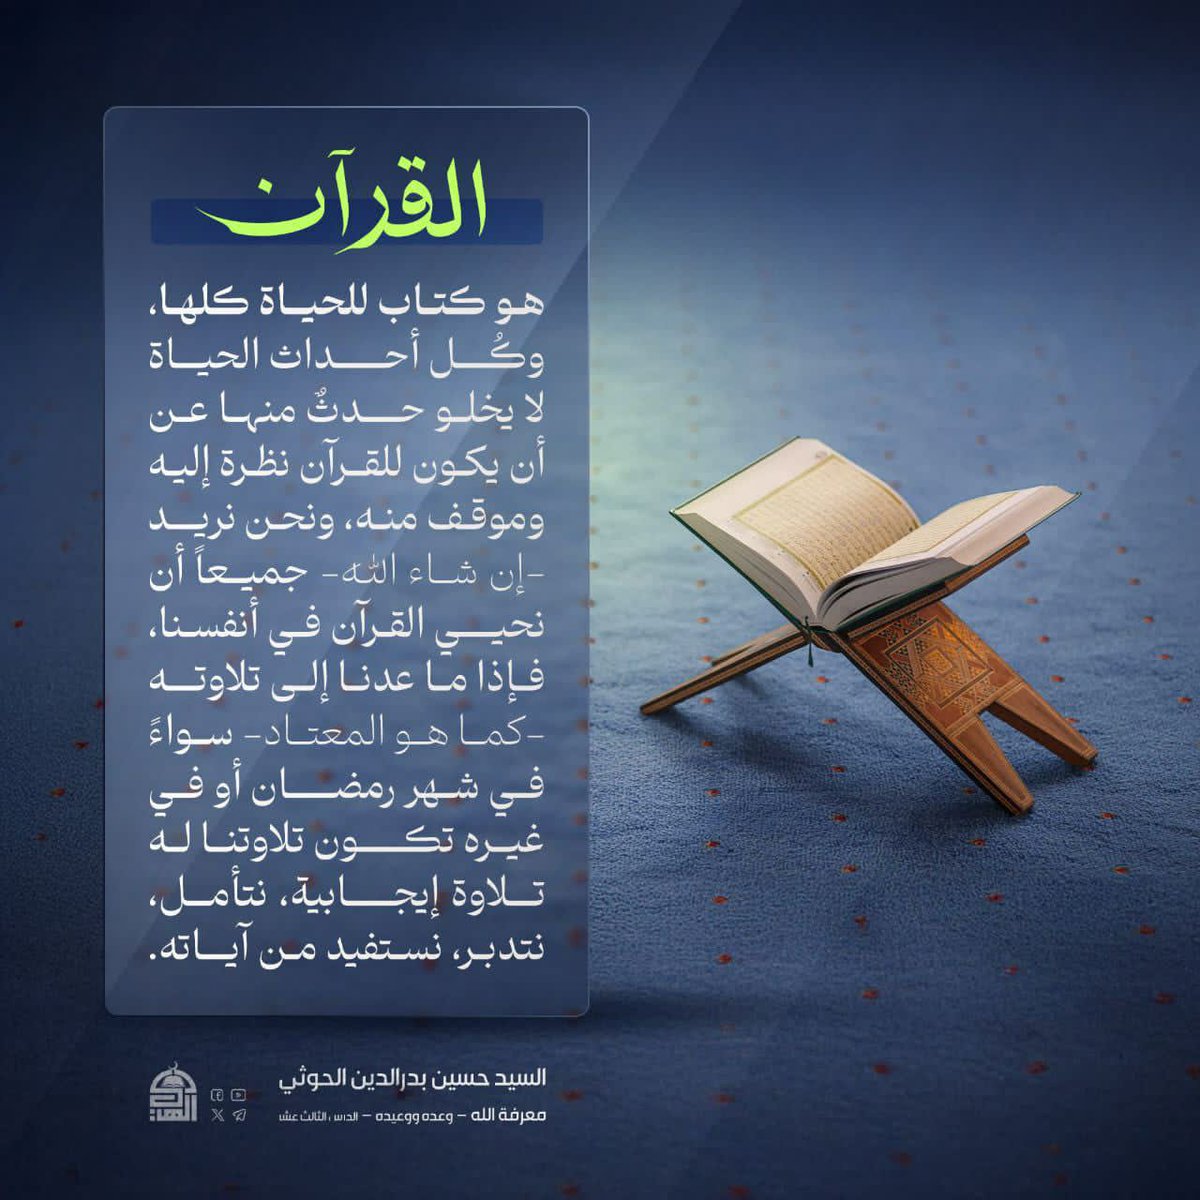 القرآن
هو كتاب للحياة كلها،
وكُل أحداث الحياة
لا يخلو حدثٌ منها عن
أن يكون للقرآن نظرة إليه
وموقف منه، ونحن نريد
-إن شاء الله- جميعاً أن
نحيي القرآن في أنفسنا،
فإذا ما عدنا إلى تلاوته
-كما هو المعتاد- سواءً
في شهر رمضان أو في
غيره تكون تلاوتنا له
تلاوة إيجابية، نتأمل،
نتدبر، نستفيد من آياته.
السيد حسين بدرالدين الحوثي
معرفة الله – وعده ووعيده – الدرس الثالث عشر